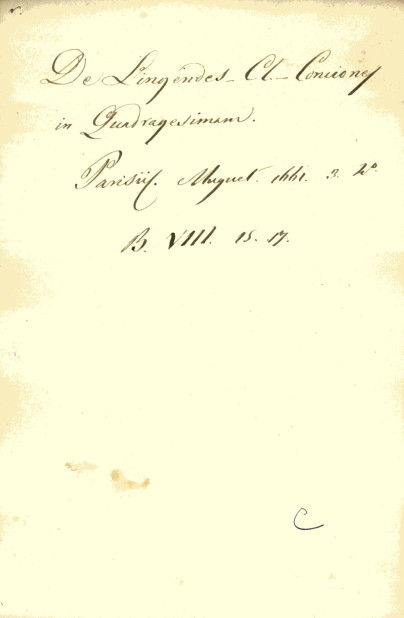 De Lingendes_ Cl._ Conciones
in Quadragesimam.
Parisiis. Muguet. 1661. 3. 4°.
B. VIII. 15. 17.
C